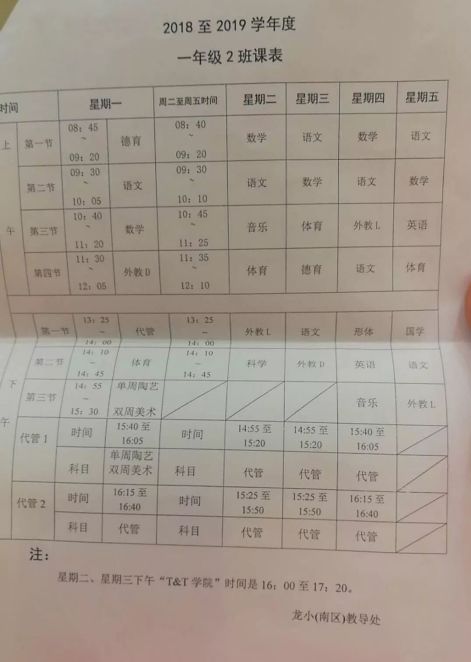 2018 至 2019 学年度
一年级 2 班课表
时间 星期一 周二至周五时间 星期二 星期三 星期四 星期五
上午
第一节 08：45 ~ 09：20 德育 08：40 ~ 09：20 数学 语文 数学 语文
第二节 09：30 ~ 10：05 语文 09：30 ~ 10：10 语文 数学 语文 数学
第三节 10：40 ~ 11：20 数学 10：45 ~ 11：25 音乐 体育 外教 L 英语
第四节 11：30 ~ 12：05 外教 D 11：35 ~ 12：10 体育 德育 语文 体育
下午
第一节 13：25 ~ 14：00 代管 13：25 ~ 14：00 外教 L 语文 形体 国学
第二节 14：10 ~ 14：45 体育 14：10 ~ 14：45 科学 外教 D 英语 语文
第三节 14：55 ~ 15：30 单周陶艺 双周美术 音乐 外教 L
代管 1 时间 15:40 至 16:05 时间 14:55 至 15:20 14:55 至 15:20 15:40 至 16:05
科目 单周陶艺 双周美术 科目 代管 代管 代管
代管 2 时间 16:15 至 16:40 时间 15:25 至 15:50 15:25 至 15:50 16:15 至 16:40
科目 代管 科目 代管 代管 代管
注：
星期二、星期三下午“T&T 学院”时间是 16：00 至 17：20。
龙小(南区)教导处